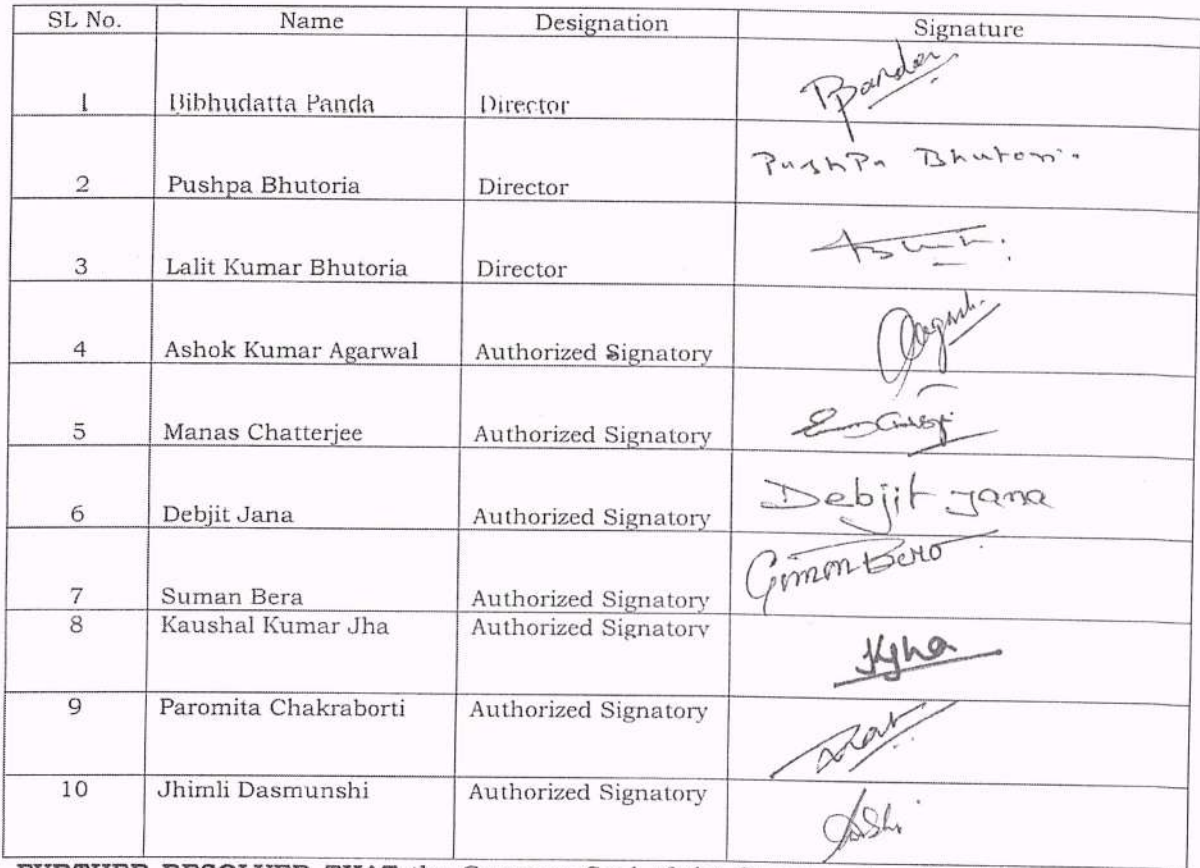 SL No. Name Designation Signature
1 Bibhudatta Panda Director
2 Pushpa Bhutoria Director PushPa Bhutoria
3 Lalit Kumar Bhutoria Director
4 Ashok Kumar Agarwal Authorized Signatory
5 Manas Chatterjee Authorized Signatory
6 Debjit Jana Authorized Signatory Debjit Jana
7 Suman Bera Authorized Signatory
8 Kaushal Kumar Jha Authorized Signatory KJha
9 Paromita Chakraborti Authorized Signatory
10 Jhimli Dasmunshi Authorized Signatory
FURTHER RESOLVED THAT the